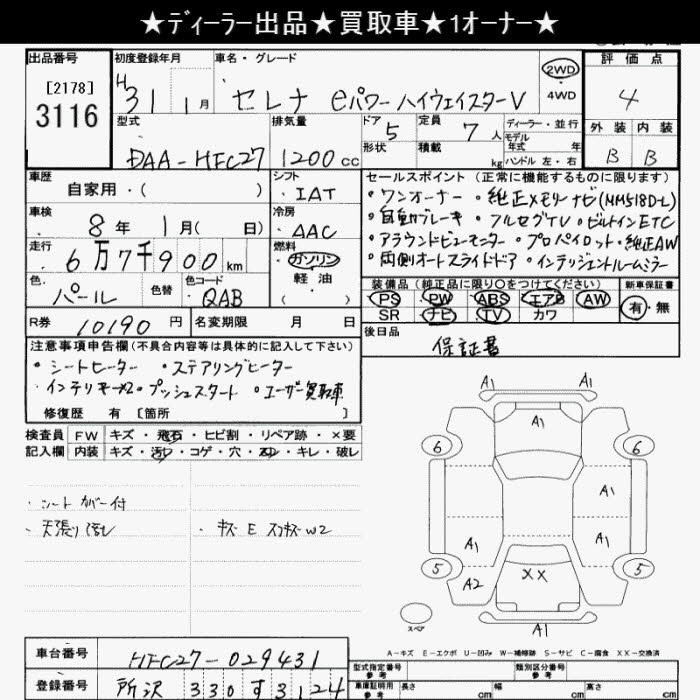 ★ディーラー出品★買取車★1オーナー★
出品番号 初度登録年月 車名・グレード 評価点
[2178] 3116 H31 1月 セレナ eパワー ハイウェイスターV 2WD ・ 4WD 4
型式 排気量 ドア 5 定員 7人 ディーラー・並行 外装 内装
DAA-HFC27 1200cc 形状 積載 kg モデル年式 年 ハンドル 左・右 B B
車歴 シフト セールスポイント (正常に機能するものに限ります)
自家用・( ) IAT ・ワンオーナー ・純正メモリナビ(MM518D-L)
車検 冷房 ・自動ブレーキ ・フルセグTV ・ビルトインETC
8年 1月( 日) AAC ・アラウンドビューモニター ・プロパイロット ・純正AW
走行 6万7千900km 燃料 ガソリン ・両側オートスライドドア ・インテリジェントルームミラー
色 パール 色替 色コード QAB 軽油 ( )
装備品(純正品に限り○をつけてください) 新車保証書
PS PW ABS エアB AW 有・無
SR ナビ TV カワ
R券 10190円 名変期限 月 日 後日品
保証書
注意事項申告欄(不具合内容等は具体的に記入して下さい)
・シートヒーター ・ステアリングヒーター
・インテリキー×2 ・プッシュスタート ・ユーザー買取車
修復歴 有 [箇所 ]
検査員 FW キズ・飛石・ヒビ割・リペア跡・×要
記入欄 内装 キズ・汚れ・コゲ・穴・スレ・キレ・破レ
・シートカバー付
・天張り汚レ ・キズE スリキズW2
A1 A1
A1
6 6
A1
A1 A1
5 5
A2 XX
スペア A1
A-キズ E-エクボ U-凹み W-補修跡 S-サビ C-腐食 XX-交換済
車台番号 HFC27-029431
登録番号 所沢 330 す 3124
型式指定番号 参考 類別区分番号 参考
車庫証明用 参考 長さ cm 幅 cm 高さ cm